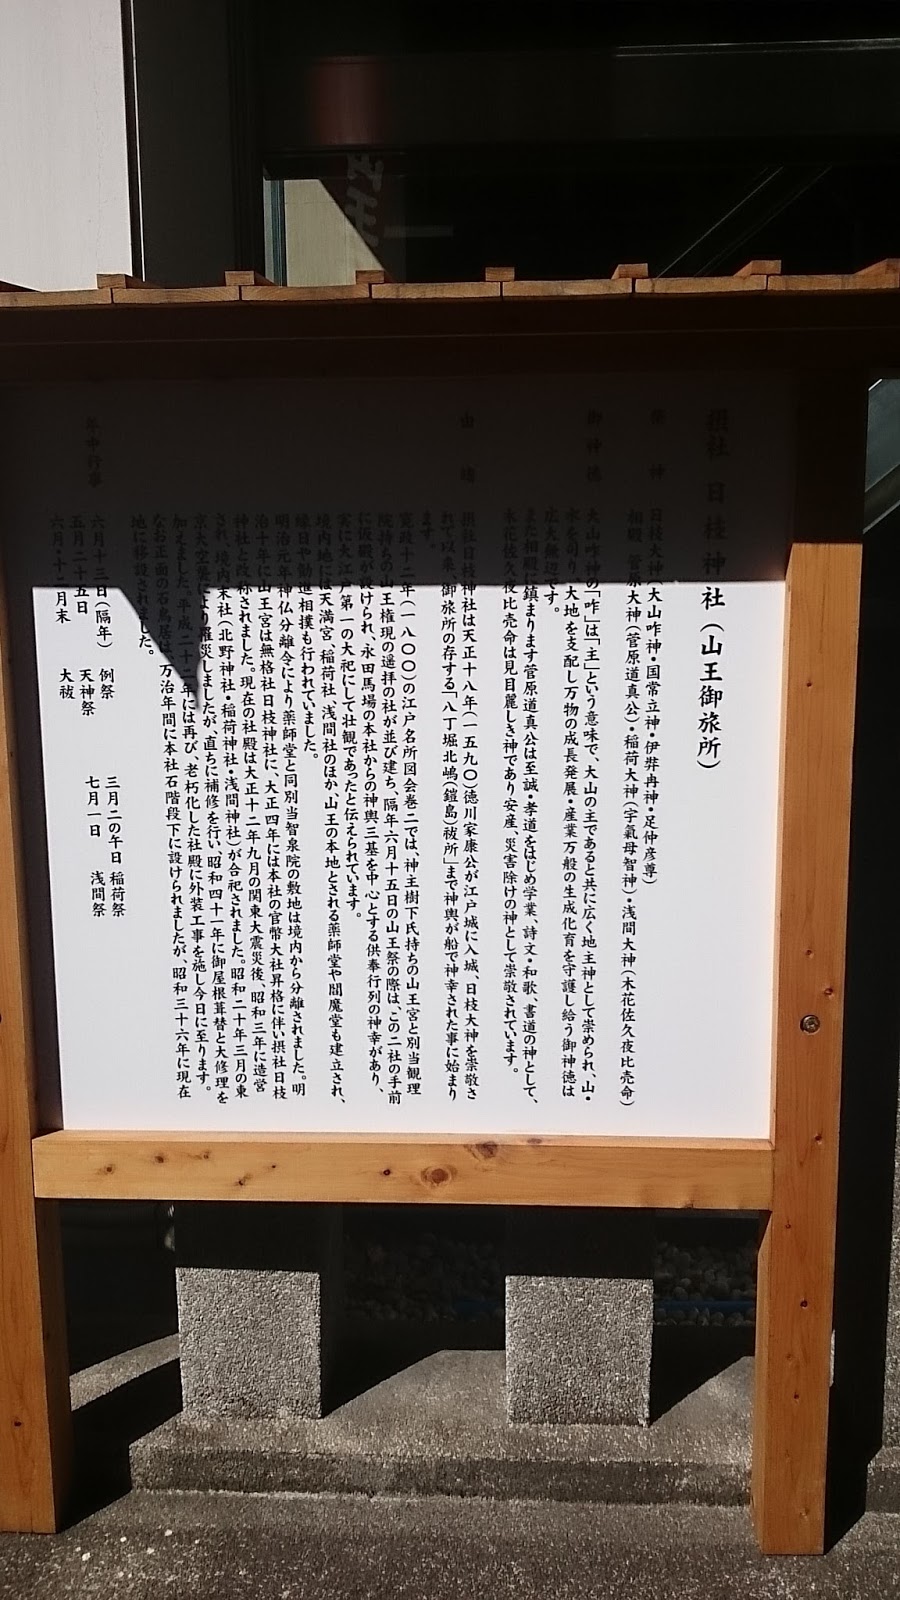 摂社 日枝神社(山王御旅所)
祭神 日枝大神(大山咋神・国常立神・伊弉冉神・足仲彦尊)
相殿 菅原大神(菅原道真公)・稲荷大神(宇氣母智神)・浅間大神(木花佐久夜比売命)
御神徳 大山咋神の「咋」は「主」という意味で、大山の主であると共に広く地主神として崇められ、山・
水を司り、大地を支配し万物の成長発展・産業万般の生成化育を守護し給う御神徳は
広大無辺です。
また相殿に鎮まります菅原道真公は至誠・孝道をはじめ学業、詩文・和歌、書道の神として、
木花佐久夜比売命は見目麗しき神であり安産、災害除けの神として崇敬されています。
由緒 摂社日枝神社は天正十八年(一五九〇)徳川家康公が江戸城に入城、日枝大神を崇敬さ
れて以来、御旅所の存する「八丁堀北嶋(鎧島)祓所」まで神輿が船で神幸された事に始まり
ます。
寛政十二年(一八〇〇)の江戸名所図会巻二では、神主樹下氏持ちの山王宮と別当観理
院持ちの山王権現の遥拝の社が並び建ち、隔年六月十五日の山王祭の際は、この二社の手前
に仮殿が設けられ、永田馬場の本社からの神輿三基を中心とする供奉行列の神幸があり、
実に大江戸第一の大祀にして壮観であったと伝えられています。
境内地には天満宮、稲荷社、浅間社のほか、山王の本地とされる薬師堂や閻魔堂も建立され、
縁日や勧進相撲も行われていました。
明治元年神仏分離令により薬師堂と同別当智泉院の敷地は境内から分離されました。明
治十年に山王宮は無格社日枝神社に、大正四年には本社の官幣大社昇格に伴い摂社日枝
神社と改称されました。現在の社殿は大正十二年九月の関東大震災後、昭和三年に造営
され、境内末社(北野神社・稲荷神社・浅間神社)が合祀されました。昭和二十年三月の東
京大空襲により罹災しましたが、直ちに補修を行い、昭和四十一年に御屋根葺替と大修理を
加えました。平成二十二年には再び、老朽化した社殿に外装工事を施し今日に至ります。
なお正面の石鳥居は、万治年間に本社石階段下に設けられましたが、昭和三十六年に現在
地に移設されました。
年中行事 六月十三日(隔年) 例祭 三月二の午日 稲荷祭
五月二十五日 天神祭 七月一日 浅間祭
六月・十二月末 大祓